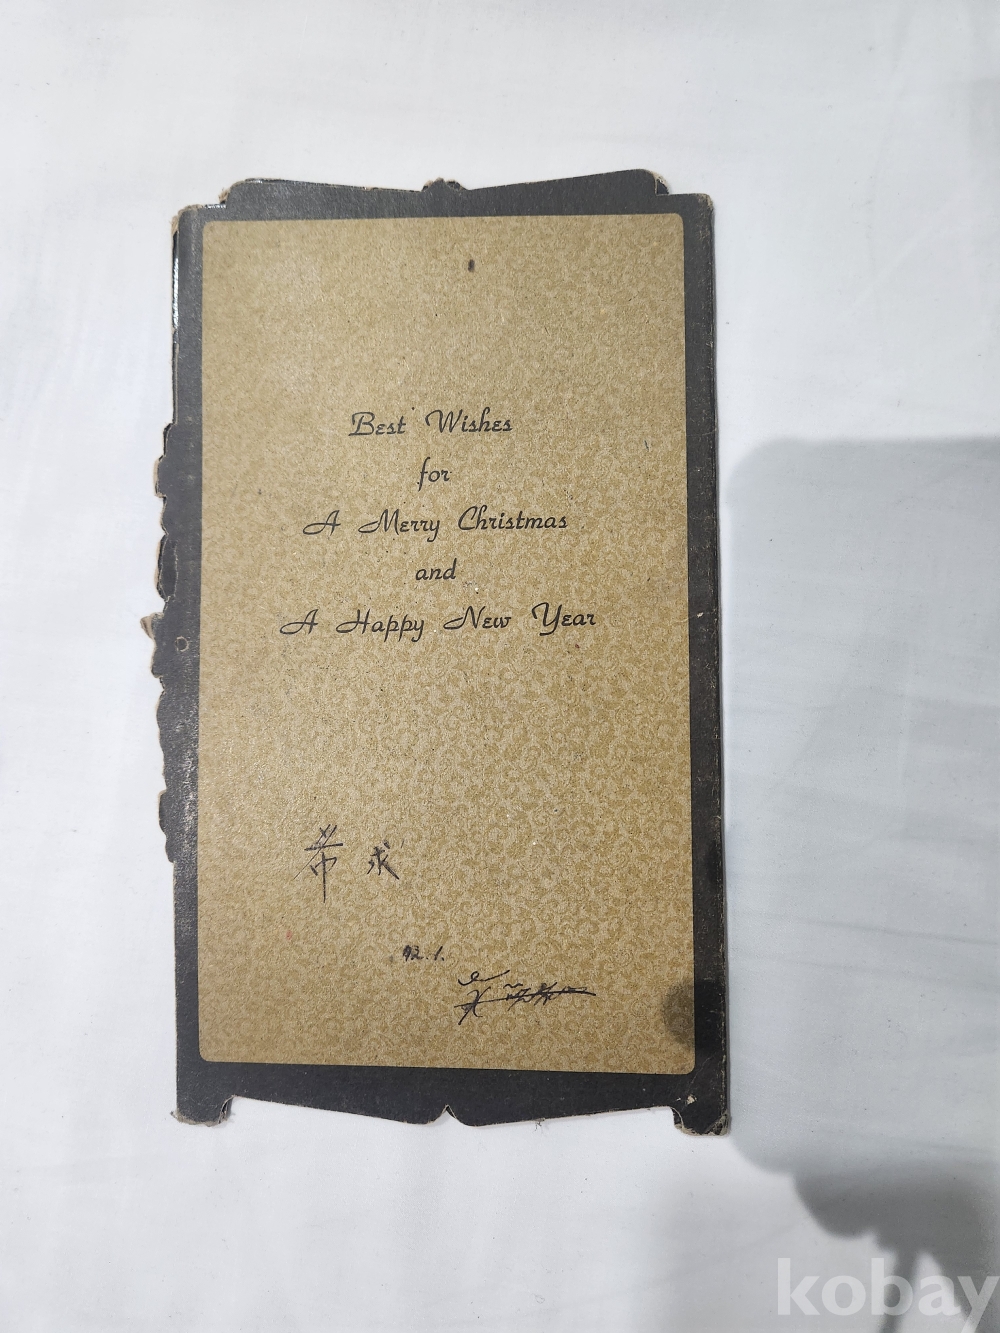 Best Wishes
for
A Merry Christmas
and
A Happy New Year
希求
92.1.
kobay